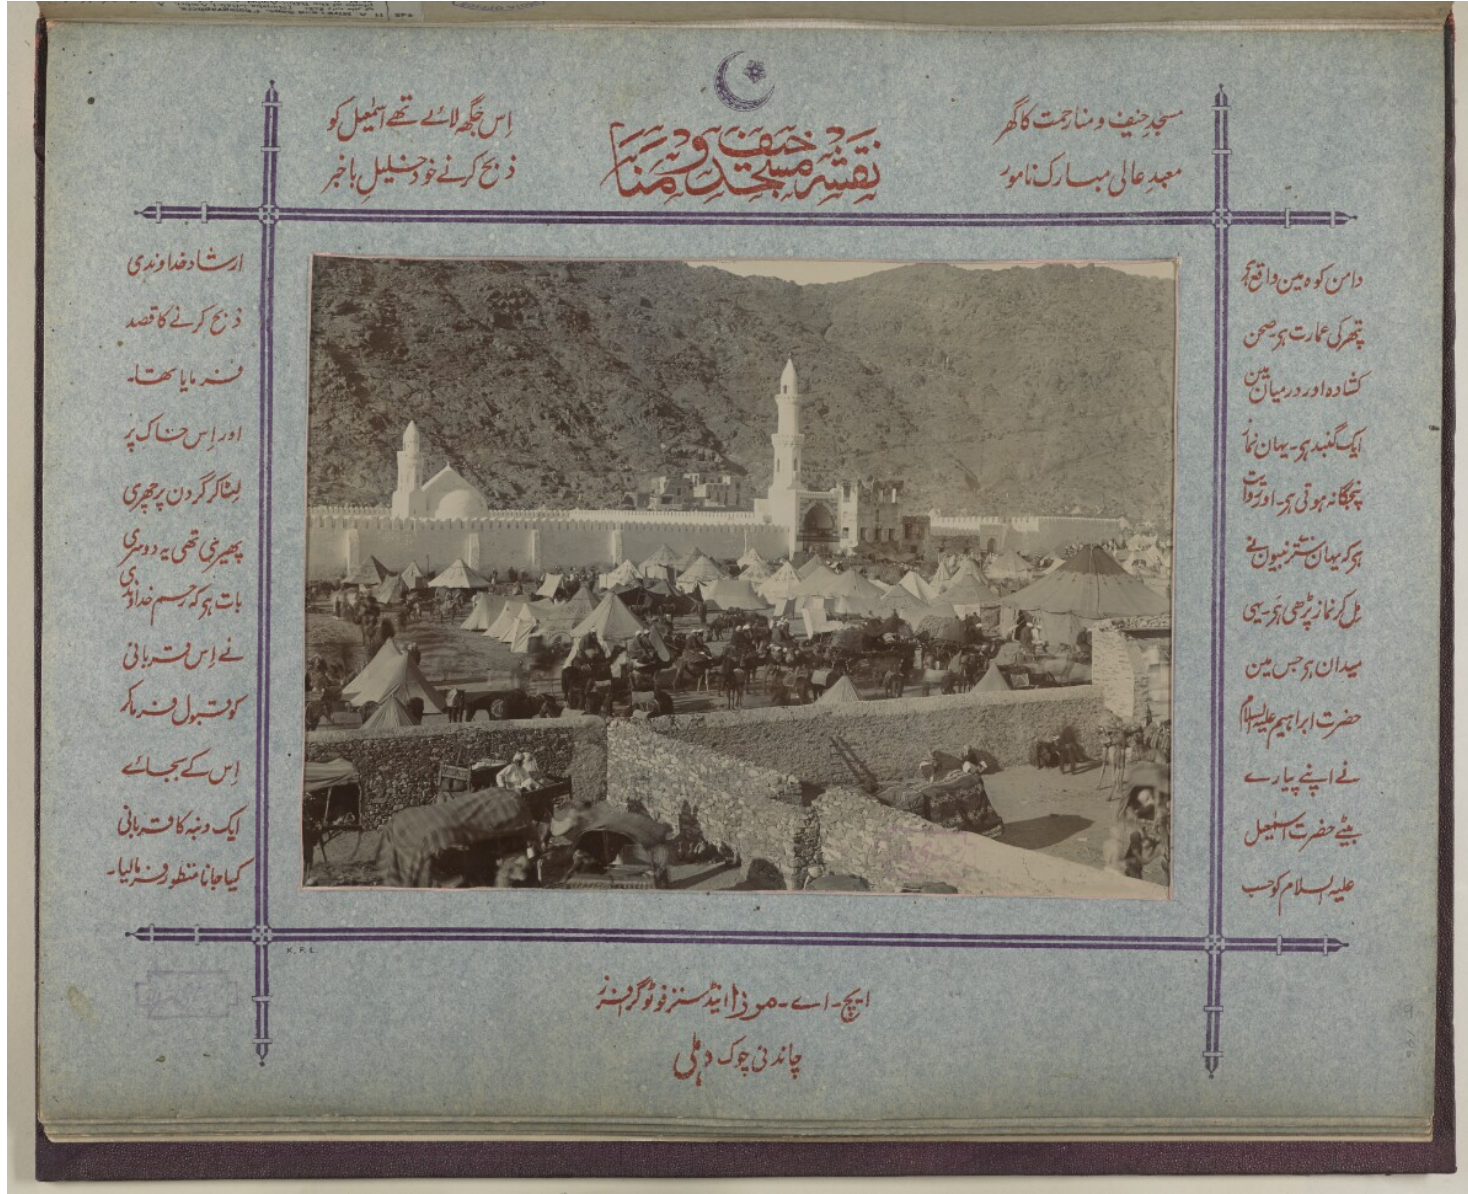 مسجدِ حنیف و منا رحمت کا گھر
معبدِ عالی مبارک نامور
نقشہ مسجد خیف و منا
اِس جگھ لائے تھے اسمٰعیل کو
ذبح کرنے خود خلیلِ باخبر
دامن کوہ مین واقع ہی
پتھر کی عمارت ہی۔ صحن
کشادہ اور درمیان مین
ایک گنبد ہی۔ یہان نماز
پنجگانہ ہوتی ہی۔ اور روایت
ہی کہ یہان ستر نبیون نے
مِل کر نماز پڑھی ہَی۔ یہی
میدان ہی جس مین
حضرت ابراہیم علیہ السلام
نے اپنے پیارے
بیٹے حضرت اسمٰعیل
علیہ السلام کو حسب
ارشاد خداوندی
ذبح کرنے کا قصد
فرمایا تھا۔
اور اِس خاک پر
لِٹا کر گردن پر چھری
پھیری تھی یہ دوسری
بات ہی کہ رحم خداوندی
نے اِس قربانی
کو قبول فرما کر
اِس کے بجائے
ایک دنبہ کا قربانی
کیا جانا منظور فرما لیا۔
K. P. L.
ایچ۔ اے۔ مرزا اینڈ سنز فوٹوگرافرز
چاندنی چوک دہلی